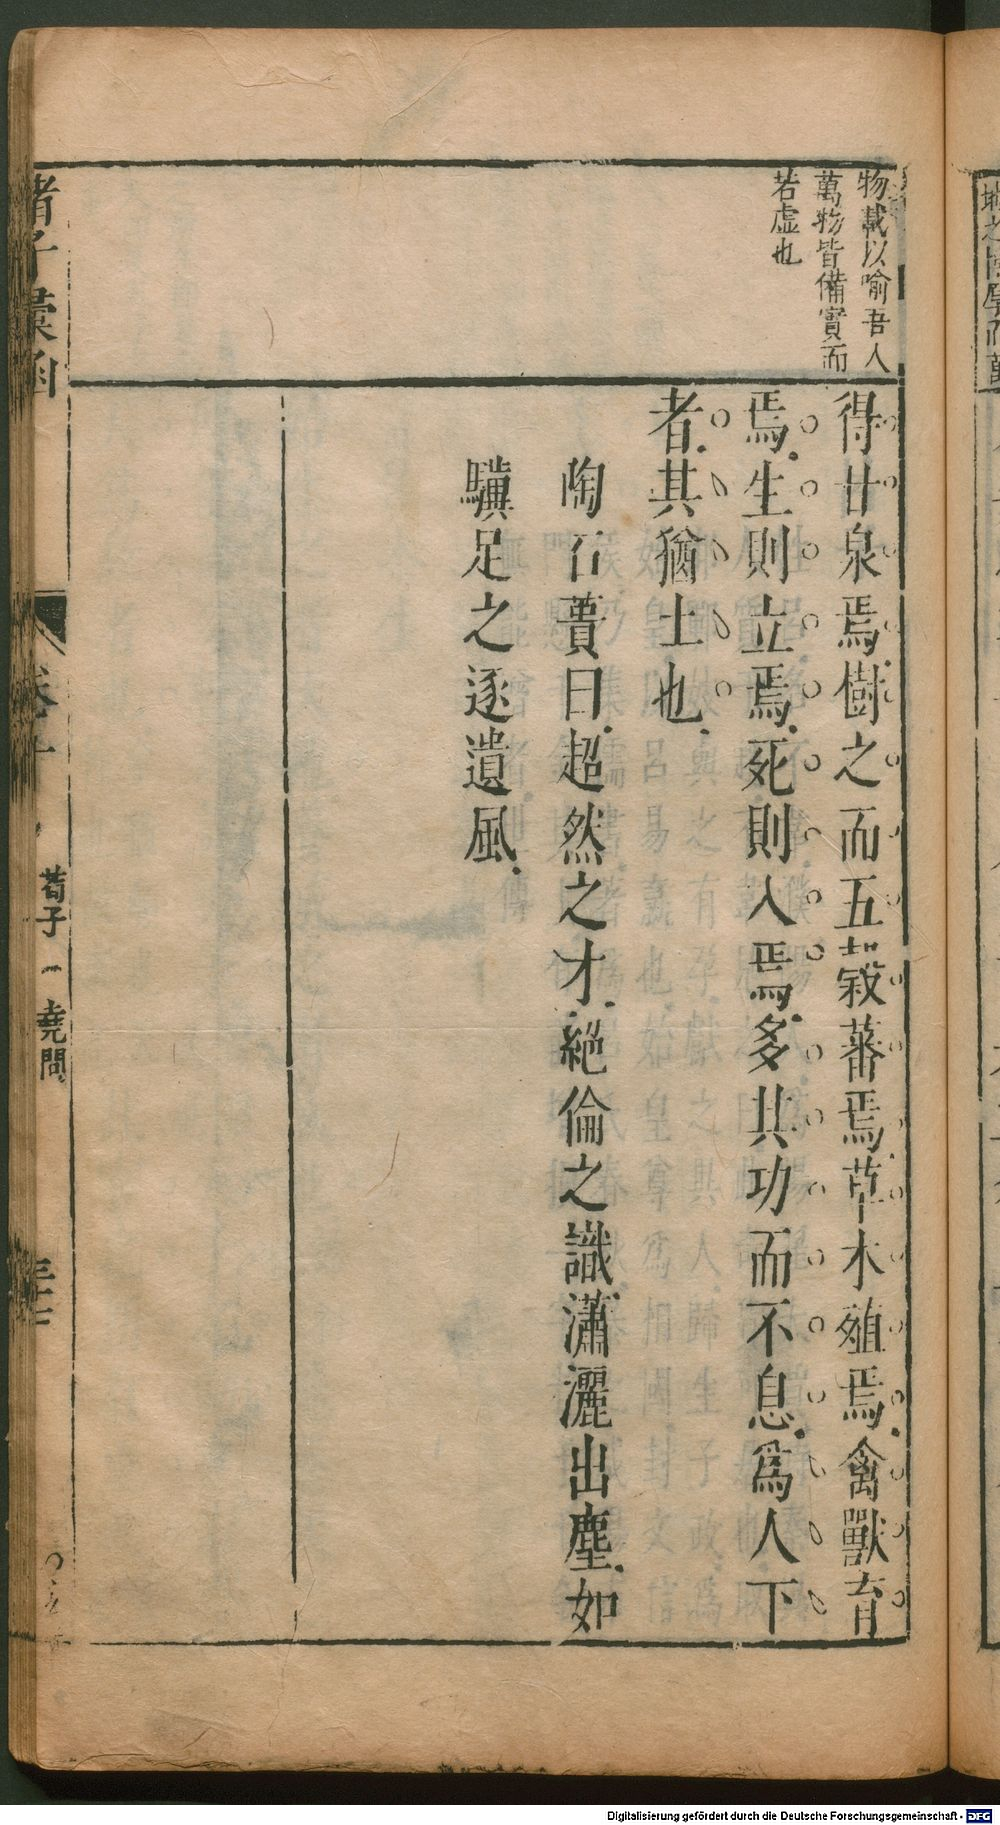 物載以喻吾人
萬物皆備實而
若虛也
得甘泉焉.樹之而五穀蕃焉.草木殖焉.禽獸育
焉.生則立焉.死則入焉.多其功而不息.爲人下
者.其猶土也.
陶石簣曰.超然之才.絕倫之識.瀟灑出塵.如
驥足之逐遺風.
諸子彙函
卷十
荀子 堯問
Digitalisierung gefördert durch die Deutsche Forschungsgemeinschaft - DFG